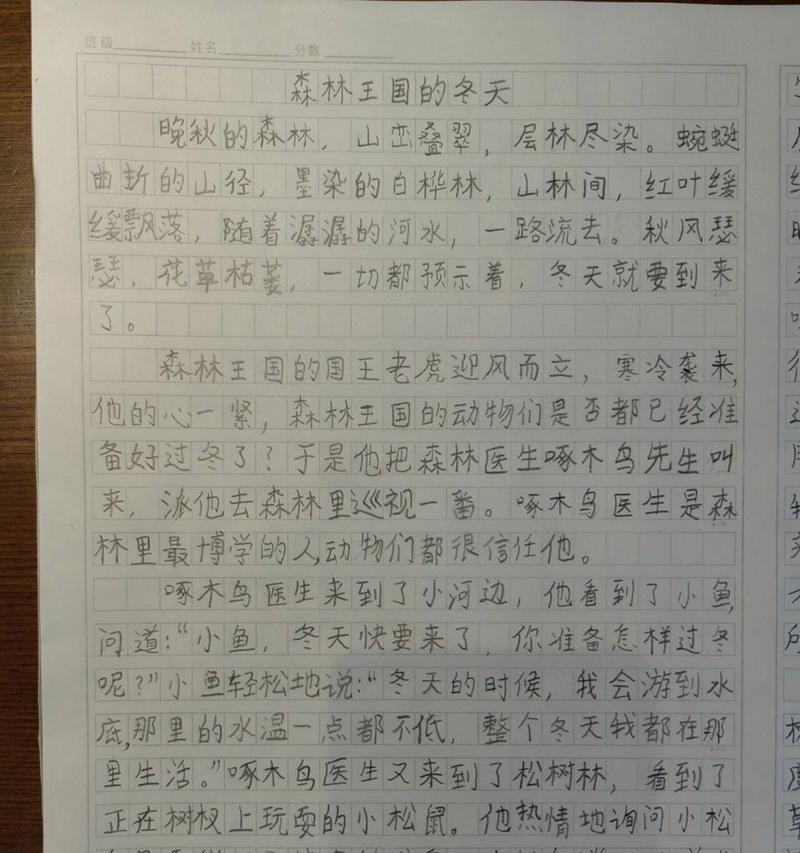 班级 姓名 分数
森林王国的冬天
晚秋的森林，山峦叠翠，层林尽染。蜿蜒
曲折的山径，墨染的白桦林，山林间，红叶缓
缓飘落，随着潺潺的河水，一路流去。秋风瑟
瑟，花草枯萎，一切都预示着，冬天就要到来
了。
森林王国的国王老虎迎风而立，寒冷袭来，
他的心一紧，森林王国的动物们是否都已经准
备好过冬了？于是他把森林医生啄木鸟先生叫
来，派他去森林里巡视一番。啄木鸟医生是森
林里最博学的人，动物们都很信任他。
啄木鸟医生来到了小河边，他看到了小鱼，
问道：“小鱼，冬天快要来了，你准备怎样过冬
呢？”小鱼轻松地说：“冬天的时候，我会游到水
底，那里的水温一点都不低，整个冬天我都在那
里生活。”啄木鸟医生又来到了松树林，看到了
正在树杈上玩耍的小松鼠。他热情地询问小松